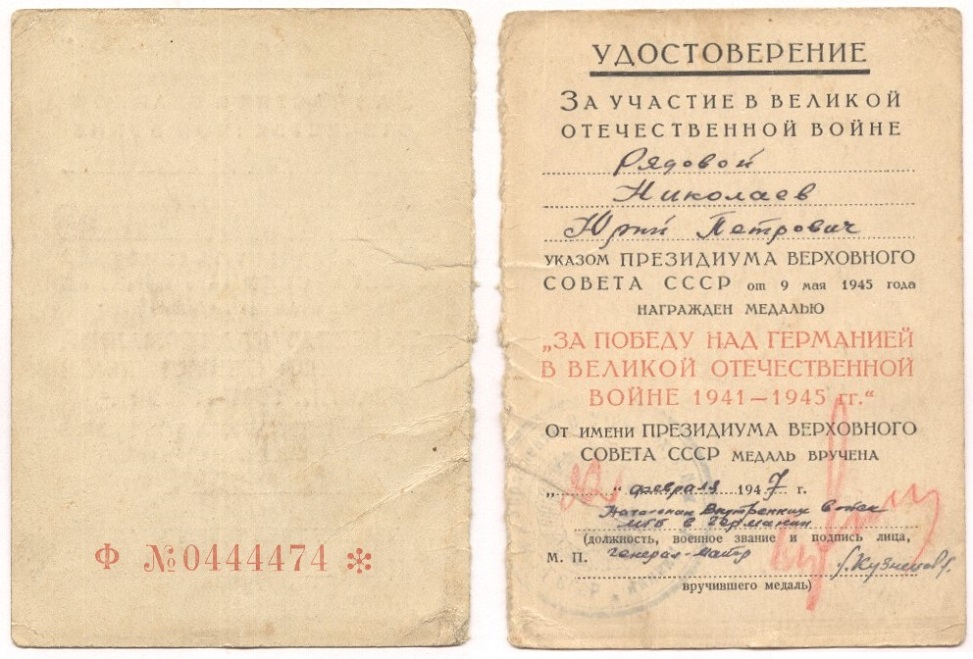 Ф №0444474 *
УДОСТОВЕРЕНИЕ
ЗА УЧАСТИЕ В ВЕЛИКОЙ
ОТЕЧЕСТВЕННОЙ ВОЙНЕ
Рядовой
Николаев
Юрий Петрович
УКАЗОМ ПРЕЗИДИУМА ВЕРХОВНОГО
СОВЕТА СССР от 9 мая 1945 года
НАГРАЖДЕН МЕДАЛЬЮ
„ЗА ПОБЕДУ НАД ГЕРМАНИЕЙ
В ВЕЛИКОЙ ОТЕЧЕСТВЕННОЙ
ВОЙНЕ 1941—1945 гг.“
ОТ ИМЕНИ ПРЕЗИДИУМА ВЕРХОВНОГО
СОВЕТА СССР МЕДАЛЬ ВРУЧЕНА
„ “ февраля 1947 г.
Начальник Внутренних войск
МГБ в Германии
(должность, военное звание и подпись лица,
М. П. генерал-майор /Кузнецов/.
вручившего медаль)